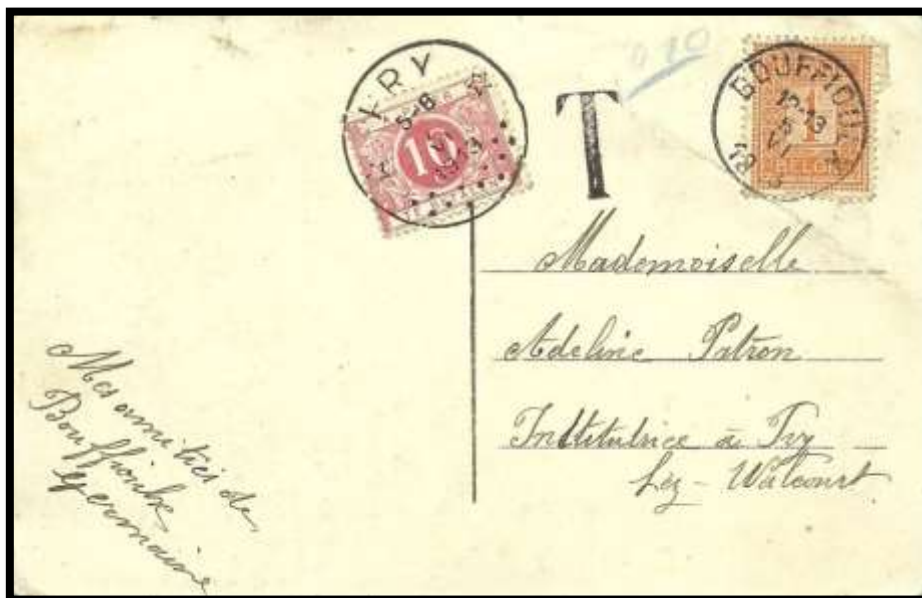 YRY
5-6
1913
10
T
0 10
BOUFFIOUL
12-13
5
VI
1
Mademoiselle
Adeline Pitron
Institutrice à Try
Léz - Walcourt
Mes amitiés de
Bouffioulx
Germaine